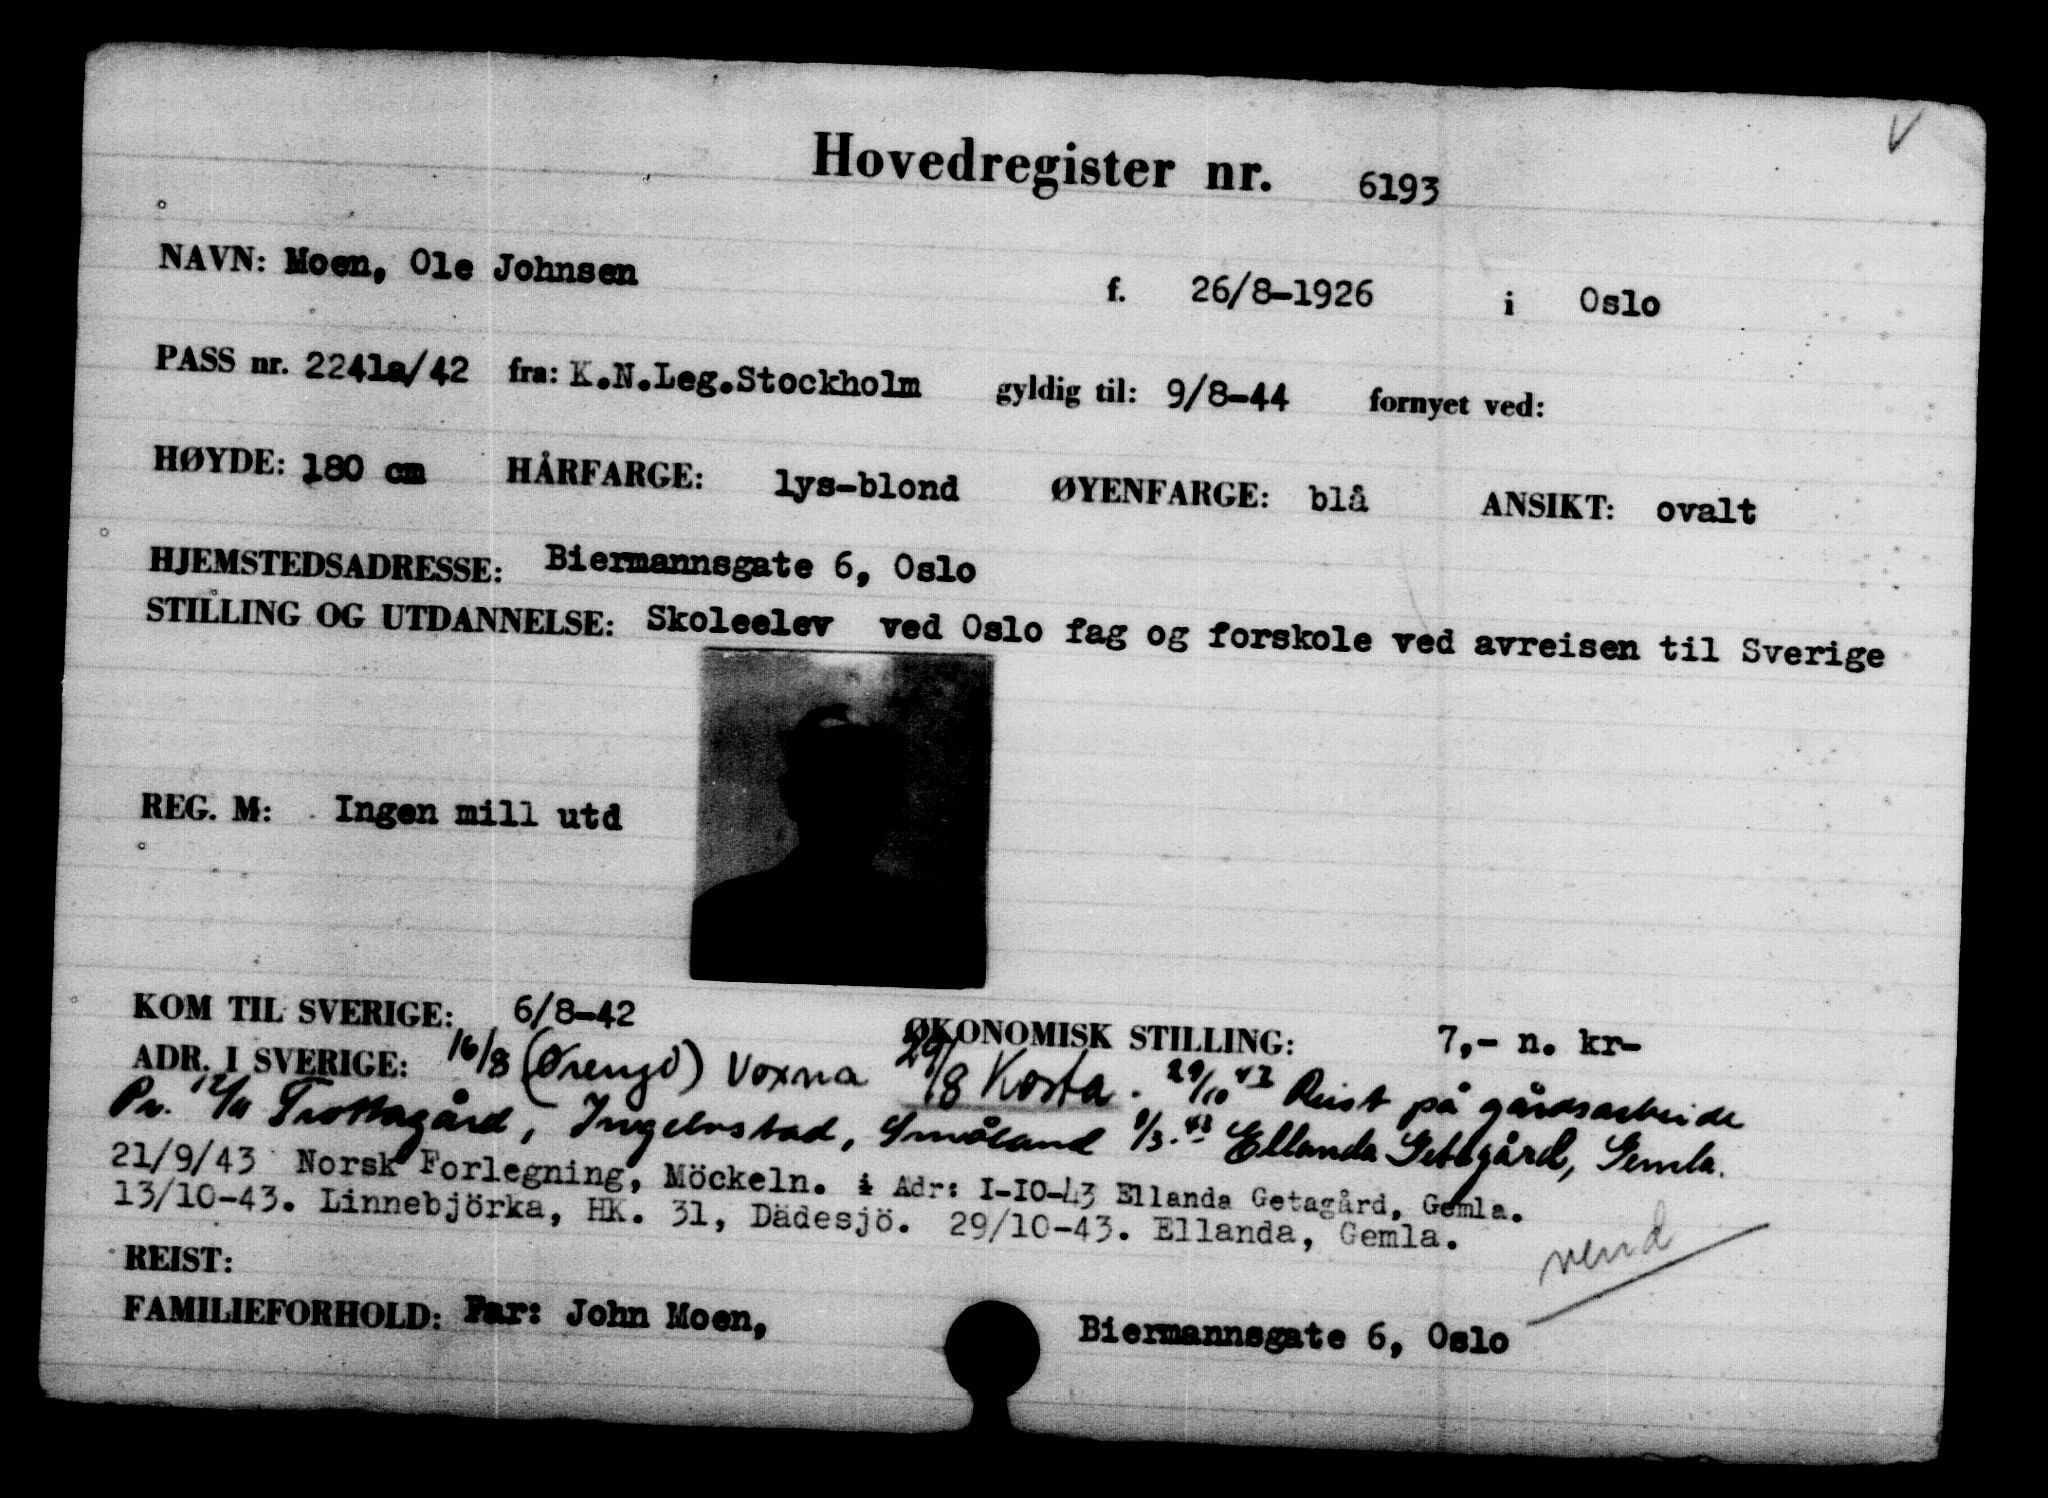 V
Hovedregister nr. 6193
NAVN: Moen, Ole Johnsen f. 26/8-1926 i Oslo
PASS nr. 2241a/42 fra: K.N.Leg.Stockholm gyldig til: 9/8-44 fornyet ved:
HØYDE: 180 cm HÅRFARGE: lys-blond ØYENFARGE: blå ANSIKT: ovalt
HJEMSTEDSADRESSE: Biermannsgate 6, Oslo
STILLING OG UTDANNELSE: Skoleelev ved Oslo fag og forskole ved avreisen til Sverige
REG. M: Ingen mill utd
KOM TIL SVERIGE: 6/8-42 ØKONOMISK STILLING: 7,- n. kr-
ADR. I SVERIGE: 16/8 Voxna 29/8 Kosta. 29/10 42 Reist på gårdsarbeide
Pr. 12/11 Trottagård, Ingelstad, Småland 1/3.43 Ellanda Getagård, Gemla.
21/9/43 Norsk Forlegning, Möckeln. Adr: I-IO-43 Ellanda Getagård, Gemla.
13/10-43. Linnebjörka, HK. 31, Dädesjö. 29/10-43. Ellanda, Gemla.
vend
REIST:
FAMILIEFORHOLD: Far: John Moen, Biermannsgate 6, Oslo